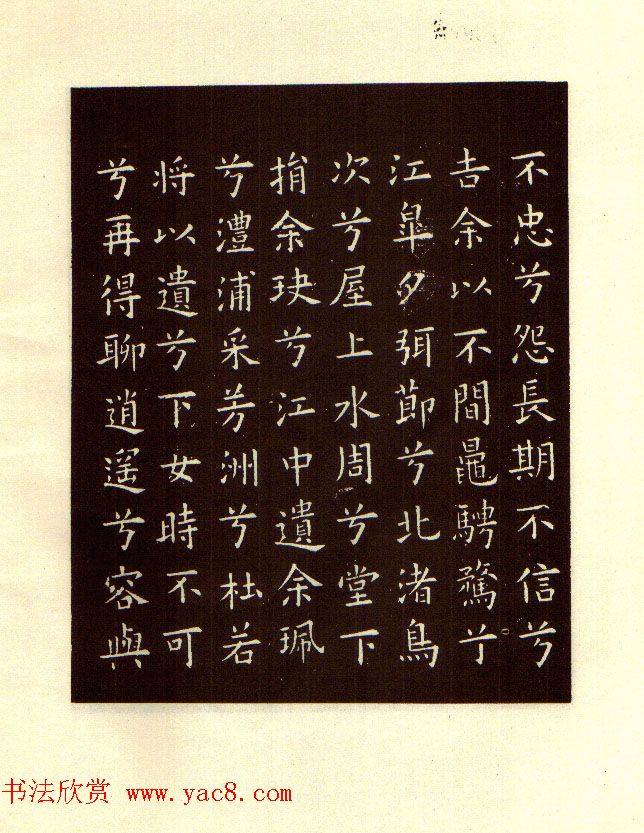 不忠兮怨長期不信兮
告余以不間鼂騁騖丁
江皐夕弭節兮北渚鳥
次兮屋上水周兮堂下
捐余玦兮江中遺余珮
兮澧浦采芳洲兮杜若
将以遺兮下女時不可
兮再得聊逍遥兮容與
书法欣赏 www.yac8.com